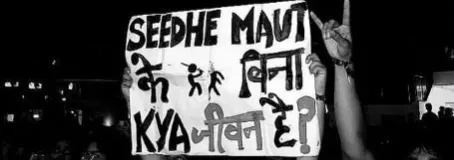 SEEDHE MAUT
के बिना
KYA जीवन है?